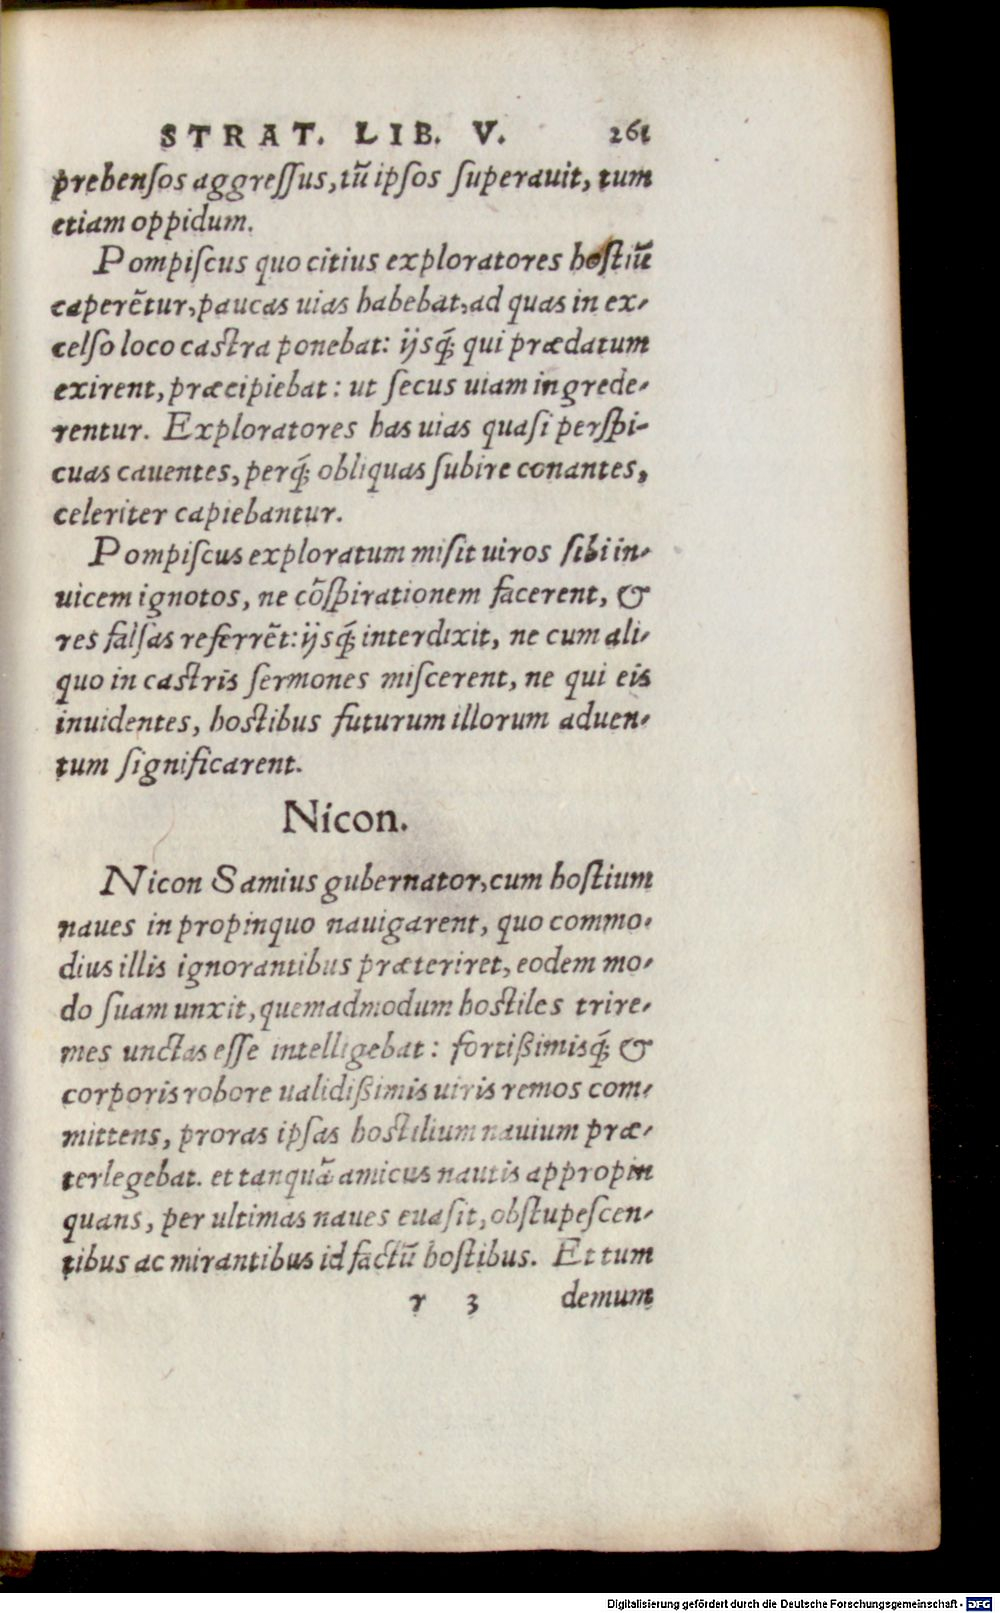 STRAT. LIB. V. 261
prehensos aggreſſus, tũ ipſos ſuperauit, tum
etiam oppidum.
Pompiſcus quo citius exploratores hoſtiũ
caperẽtur, paucas uias habebat, ad quas in ex-
celſo loco caſtra ponebat: ijsq́; qui prædatum
exirent, præcipiebat: ut ſecus uiam ingrede-
rentur. Exploratores has uias quaſi perſpi-
cuas cauentes, perq́; obliquas ſubire conantes,
celeriter capiebantur.
Pompiſcus exploratum miſit uiros ſibi in-
uicem ignotos, ne cõſpirationem facerent, &
res falſas referrẽt: ijsq́; interdixit, ne cum ali-
quo in caſtris ſermones miſcerent, ne qui eis
inuidentes, hoſtibus futurum illorum aduen-
tum ſignificarent.
Nicon.
Nicon Samius gubernator, cum hoſtium
naues in propinquo nauigarent, quo commo-
dius illis ignorantibus præteriret, eodem mo-
do ſuam unxit, quemadmodum hoſtiles trire-
mes unctas eſſe intelligebat: fortißimisq́; &
corporis robore ualidißimis uiris remos com-
mittens, proras ipſas hoſtilium nauium præ-
terlegebat. et tanquã amicus nautis appropin
quans, per ultimas naues euaſit, obſtupeſcen-
tibus ac mirantibus id factũ hoſtibus. Et tum
r 3 demum
Digitalisierung gefördert durch die Deutsche Forschungsgemeinschaft - DFG